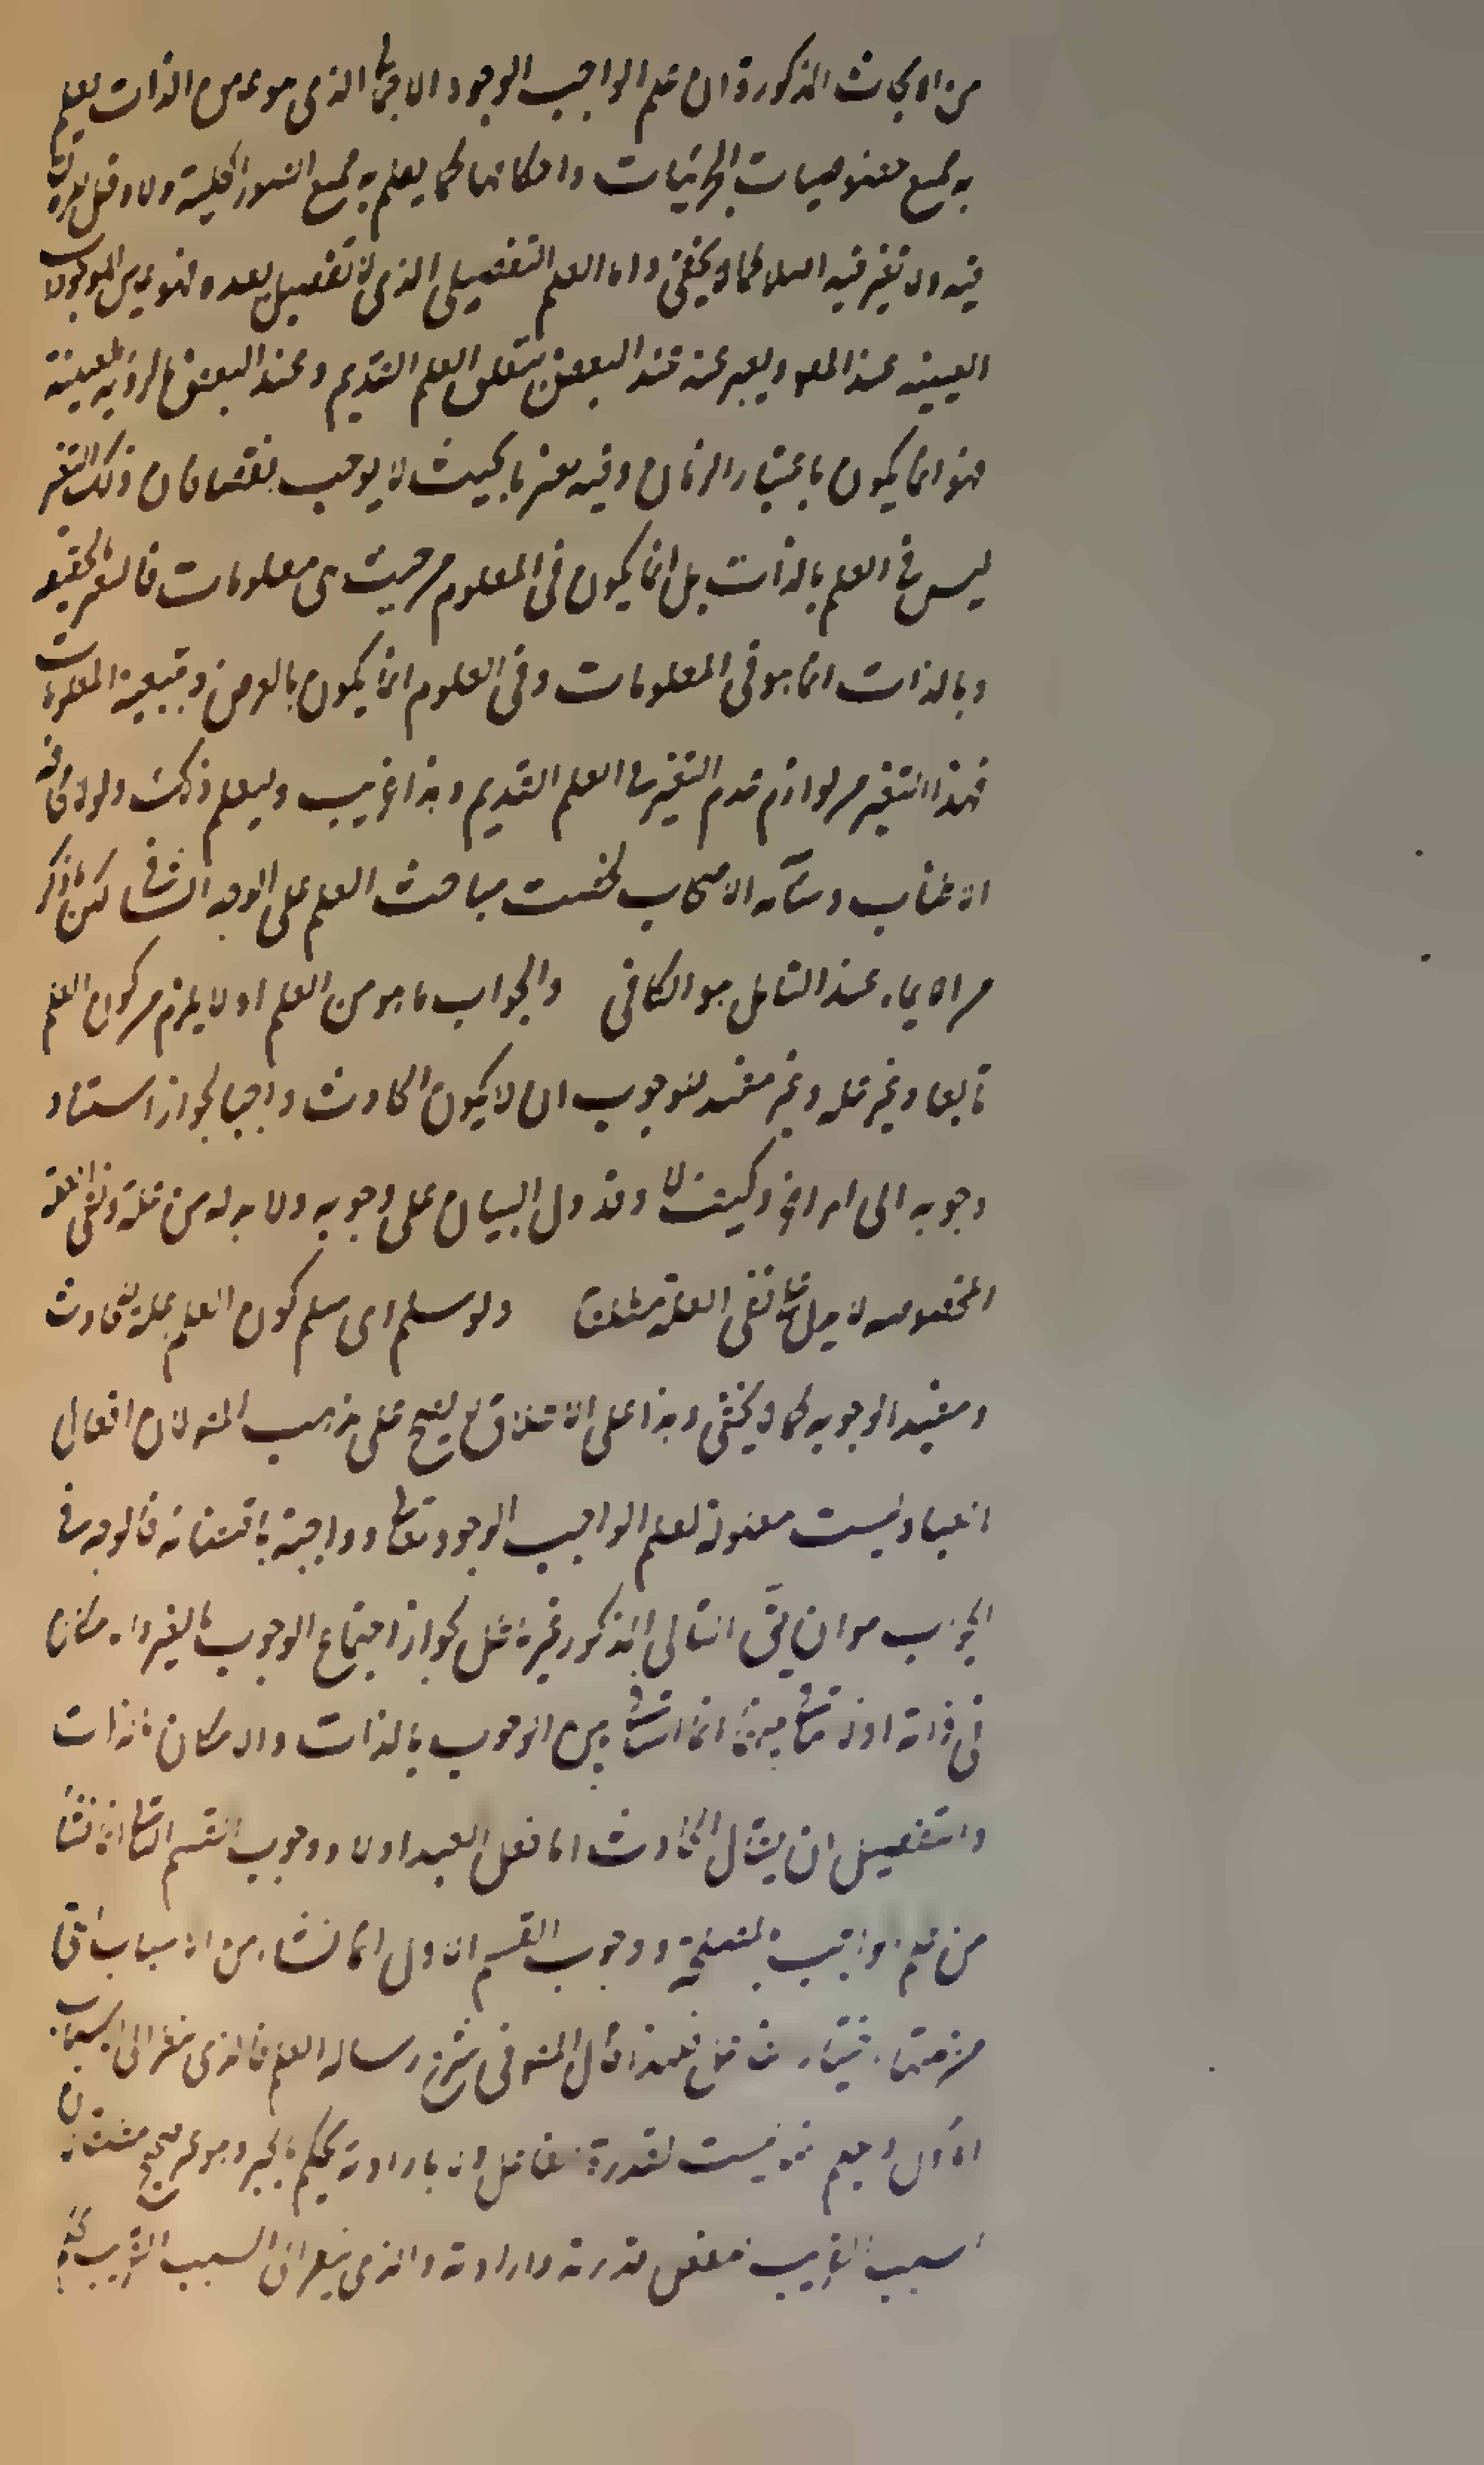 من الابحاث المذكورة ان علم الواجب الوجود الاجمالى الذى هو عين الذات يعلم
به جميع خصوصيات الجزئيات واحكامها كما يعلم به جميع الصور الكلية ولا دخل للزمان
فيه ولا تغير فيه اصلا كما لا يخفى واما العلم التفصيلى الذى لا تفصيل بعده وهو عين الموجودات
العينية عند المص ويعبر عنه عند البعض بتعلق العلم القديم وعند البعض بالرؤية المعينة
فهو انما يكون باعتبار الزمان وفيه تغير ما بحيث لا يوجب نقصا فان ذلك التغير
ليس فى العلم بالذات بل انما يكون فى المعلوم من حيث هى معلومات فالتغير الحقيقى
وبالذات انما هو فى المعلومات وفى العلوم انما يكون بالعرض وبتبعية المعلومات
فهذا التغير من لوازم عدم التغير فى العلم القديم وهذا غريب وليعلم ذلك ولولا مخافة
الاطناب وسآمة الاصحاب لخصت مباحث العلم على الوجه الشافى لكن ما ذكر
من الايماء عند التامل هو الكافى والجواب ما هو من العلم اولا يلزم من كون العلم
تابعا وغير علة وغير مفيد للوجوب ان لا يكون الحادث واجبا لجواز استناد
وجوبه الى امر اخر وكيف لا وقد دل البيان على وجوبه ولا بد له من علة ونفى العلة
المخصوصة لا يدل على نفى العلة مطلقا ولو سلم اى سلم كون العلم علة للحادث
ومفيد الوجوبه كما لا يخفى وهذا على الاطلاق لا يصح على مذهب المص لان افعال
العباد ليست معلولة لعلم الواجب الوجود تعالى وواجبة باقتضائه فالوجه فى
الجواب هو ان يق التالى المذكور غير باطل لجواز اجتماع الوجوب بالغير والامكان
فى ذاته اذ لا تنافى بينهما انما التنافى بين الوجوب بالذات والامكان بالذات
والتفصيل ان يقال الحادث اما فعل العبد اولا ووجوب القسم الثانى انما نشأ
من علم الواجب بالمصلحة ووجوب القسم الاول انما نشاء من الاسباب التى
من جملتها اختيار الفاعل فلهذا قال المص فى شرح رسالة العلم فالذى ينظر الى الاسباب
الاول ويعلم انها ليست بقدرة الفاعل ولا بارادته يحكم بالجبر وهو غير صحيح مطلقا لان
السبب القريب للفعل قدرته وارادته والذى ينظر الى السبب القريب يحكم